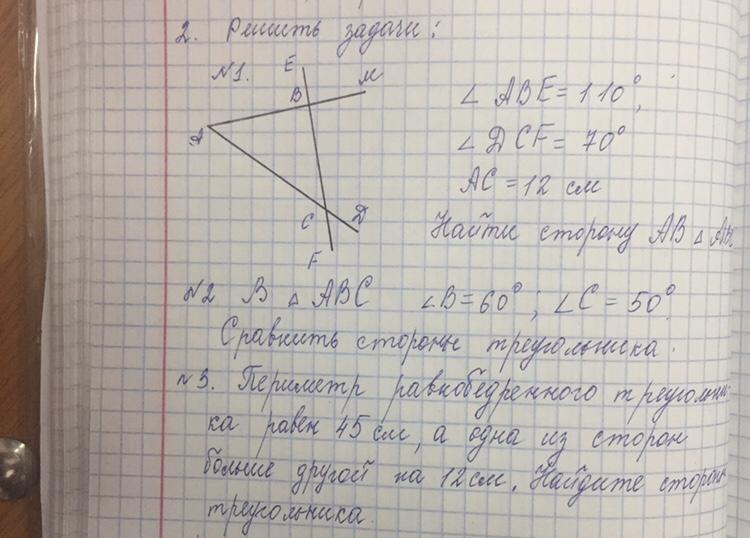 2. Решить задачи:
№1.
E
M
B
A
C
D
F
∠ ABE = 110°;
∠ DCF = 70°
AC = 12 см
Найти сторону AB △
№2 В △ ABC ∠B = 60°; ∠C = 50°
Сравнить стороны треугольника.
№3. Периметр равнобедренного треугольни-
ка равен 45 см, а одна из сторон
больше другой на 12 см. Найдите стороны
треугольника.